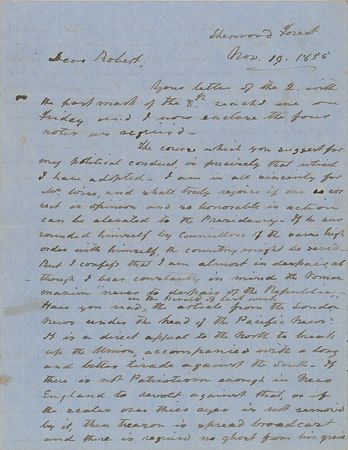 Sherwood Forest
Nov. 19. 1855
Dear Robert;
Your letter of the 2. with
the post mark of the 8th reached me on
Friday and I now enclose the four
notes as required -
The course which you suggest for
my political conduct, is precisely that which
I have adopted - I am in all sincerity for
Mr Wise, and shall truly rejoice if one so cor
rect in opinion and so honorable in action
can be elevated to the Presidency - If he sur
rounded himself by Councillors of the same high
order with himself the country might be saved
But I confess that I am almost in despair, al
though I bear constantly in mind the Roman
maxim never to despair of the Republic.
in the Herald of last week
Have you read, the article from the London
News under the head of the Pacific News?
It is a direct appeal to the North to break
up the Union, accompanied with a long
and bitter tirade against the South - If
there is not Patriotism enough in New
England to revolt against that, or if
the scales over their eyes is not removed
by it, then treason is spread broadcast
and there is required no ghost from his grave